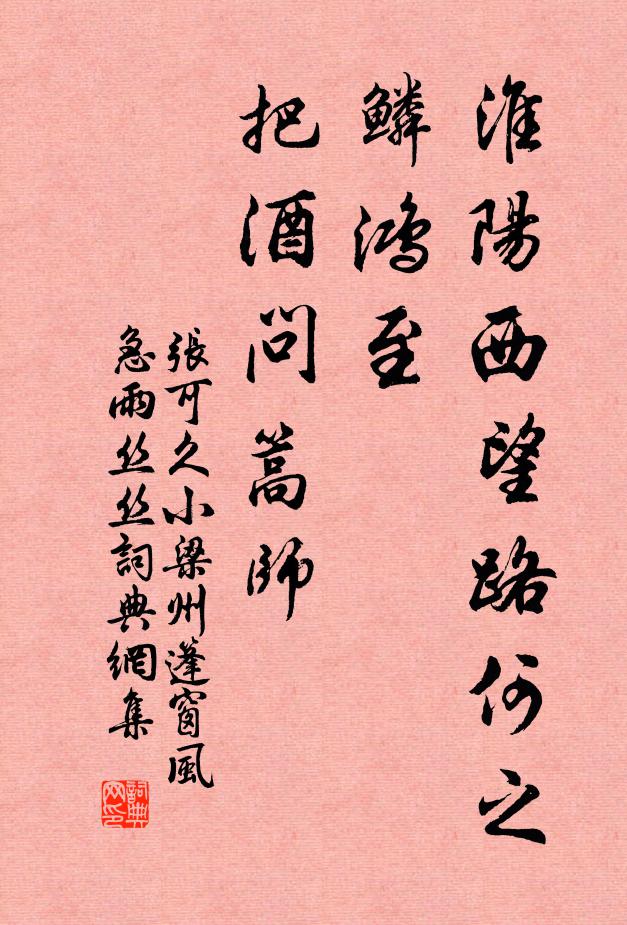 淮陽西望路何之
鱗鴻至
把酒問篙師
張可久小梁州蓬窗風
急雨丝丝詞典網集
詞典
网印